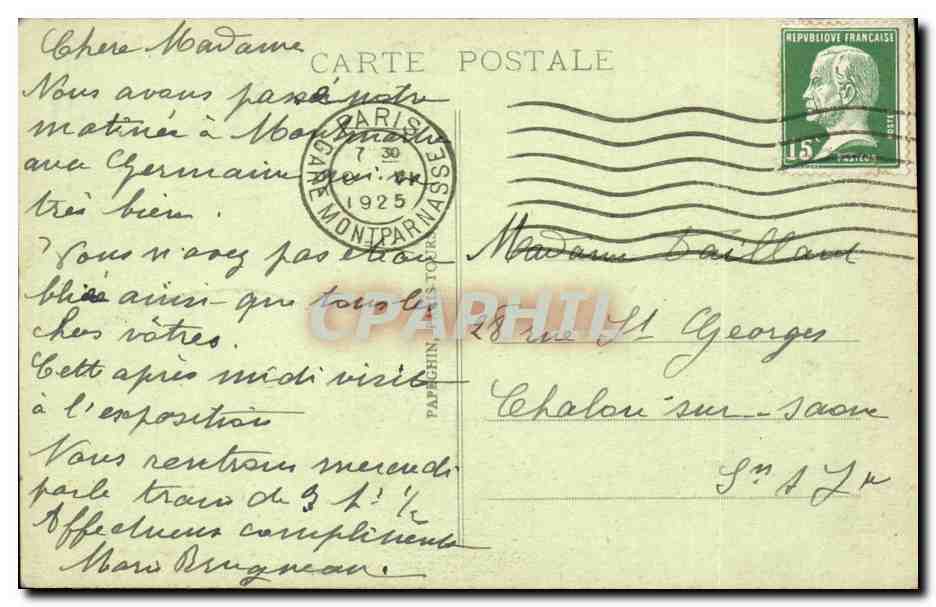 Chere Madame
CARTE POSTALE
Nous avons passé notre
matinée à Montmartre
avec Germaine qui va
très bien.
Vous n'avez pas été ou
bliée ainsi que tous les
chers vôtres.
Cette après midi visite
à l'exposition
Nous rentrons mercredi
par le train de 3 h. 1/2
Affectueux compliments
PARIS
GARE MONTPARNASSE
7 30
1925
REPUBLIQUE FRANÇAISE
POSTES
15c
PASTEUR
PAPEGHIN, PARIS-TOURS
CPARPHIL
Madame
28 rue St Georges
Chalon-sur-Saone
Sne & Lre